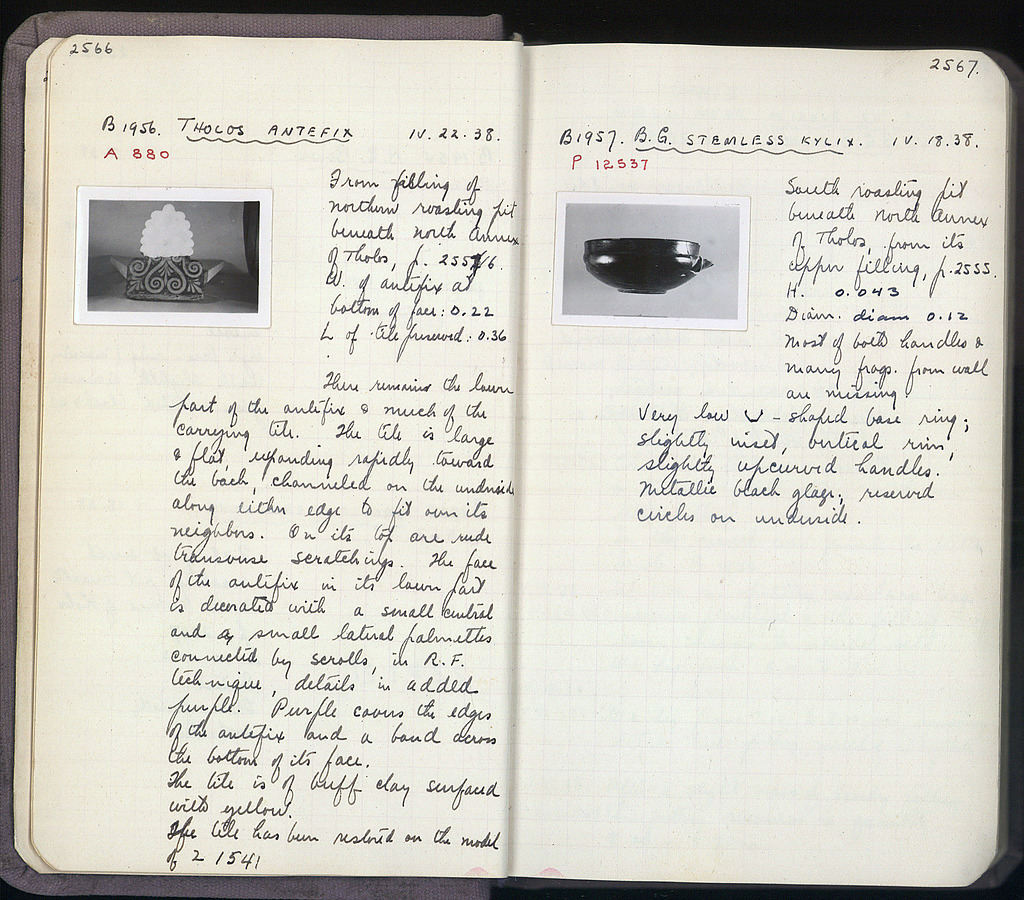 2566
B 1956. THOLOS ANTEFIX IV. 22. 38.
A 880
From filling of
northern roasting pit
beneath north annex
of Tholos, p. 2556.
W. of antefix at
bottom of face: 0.22
L of tile preserved: 0.36
There remains the lower
part of the antefix & much of the
carrying tile. The tile is large
& flat, expanding rapidly toward
the back, channeled on the underside
along either edge to fit over its
neighbors. On its top are rude
transverse scratchings. The face
of the antefix in its lower part
is decorated with a small central
and small lateral palmettes
connected by scrolls, in R.F.
technique, details in added
purple. Purple covers the edges
of the antefix and a band across
the bottom of its face.
The tile is of buff clay surfaced
with yellow.
The tile has been restored on the model
of 2 1541
2567.
B 1957. B.G. STEMLESS KYLIX. IV. 18. 38.
P 12537
South roasting pit
beneath north annex
of Tholos, from its
upper filling, p. 2555.
H. 0.043
Diam. diam 0.12
Most of both handles &
many frags. from wall
are missing
Very low U-shaped base ring;
slightly inset, vertical rim,
slightly upcurved handles.
Metallic black glaze; reserved
circles on underside.